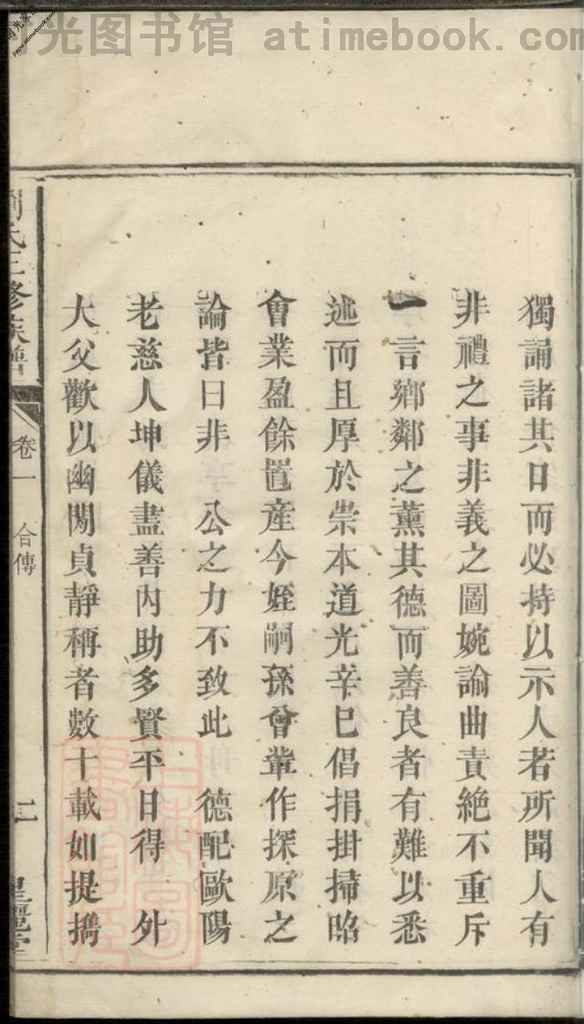 时光图书馆 atimebook.com
獨誦諸其口而必持以示人若所聞人有
非禮之事非義之圖婉諭曲責絕不重斥
一言鄉鄰之薰其德而善良者有難以悉
述而且厚於崇本道光辛巳倡捐掛掃昭
會業盈餘置產今姪嗣孫曾輩作探原之
論皆曰非 公之力不致此 德配歐陽
老慈人坤儀盡善內助多賢平日得 外
大父歡以幽閑貞靜稱者數十載如提攜
劉氏三修族譜
卷一 合傳
二